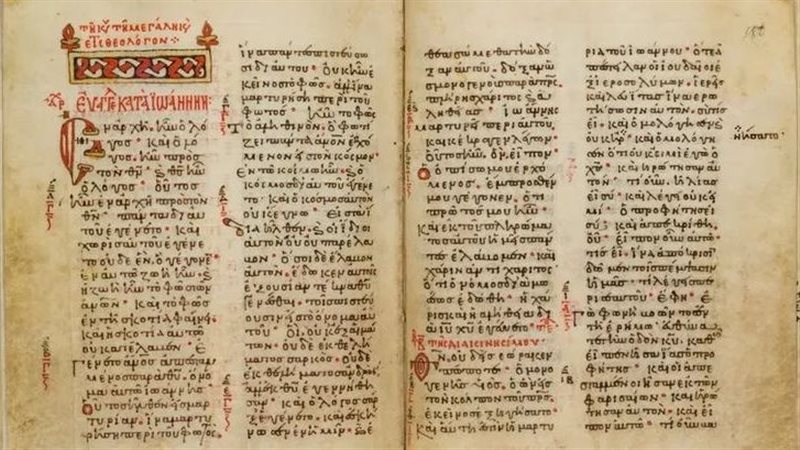 τῇ κυ τῇ μεγάλης
εἰς θεολόγον
εὐαγγ κατὰ ἰωάννην
Ἐν ἀρχῇ ἦν ὁ λό
γος· καὶ ὁ λό
γος ἦν πρὸς
τὸν θν· καὶ θς ἦν
ὁ λόγος· οὗτος
ἦν ἐν ἀρχῇ πρὸς τὸν
θν· πάντα δι αὐ
τοῦ ἐγένετο· καὶ
χωρὶς αὐτοῦ ἐγένε
το οὐδὲ ἕν· ὃ γέγονε
ἐν αὐτῷ ζωὴ ἦν· καὶ
ἡ ζωὴ ἦν τὸ φῶς τῶν
ἀνων· καὶ τὸ φῶς
ἐν τῇ σκοτίᾳ φαίνει·
καὶ ἡ σκοτία αὐτὸ
οὐ κατέλαβεν· ἐ
γένετο ἄνος ἀπεσταλ
μένος παρὰ θυ· ὄνο
μα αὐτῷ ἰωάννης·
οὗτος ἦλθεν εἰς μαρ
τυρίαν· ἵνα μαρτυ
ρήσῃ περὶ τοῦ φωτός·
ἵνα πάντες πιστεύσω
σι δι αὐτοῦ· οὐκ ἦν ἐ
κεῖνος τὸ φῶς· ἀλλ ἵνα
μαρτυρήσῃ περὶ τοῦ
φωτός· ἦν τὸ φῶς
τὸ ἀληθινόν· ὃ φωτί
ζει πάντα ἄνον ἐρχό
μενον εἰς τὸν κόσμον·
ἐν τῷ κόσμῳ ἦν· καὶ ὁ
κόσμος δι αὐτοῦ ἐγέ
νετο· καὶ ὁ κόσμος αὐτὸν
οὐκ ἔγνω· εἰς τὰ ἴ
δια ἦλθεν· καὶ οἱ ἴδιοι
αὐτὸν οὐ παρέλαβον·
ὅσοι δὲ ἔλαβον
αὐτόν· ἔδωκεν αὐτοῖς
ἐξουσίαν τέκνα θυ γε
νέσθαι· τοῖς πιστεύ
ουσιν εἰς τὸ ὄνομα αὐ
τοῦ· οἳ οὐκ ἐξ αἱμά
των· οὐδὲ ἐκ θελή
ματος σαρκός· οὐδὲ
ἐκ θελήματος ἀνδρός·
ἀλλ ἐκ θυ ἐγεννήθη
σαν· καὶ ὁ λόγος σὰρξ
ἐγένετο· καὶ ἐσκή
νωσεν ἐν ἡμῖν· καὶ ἐ
θεασάμεθα τὴν δό
ξαν αὐτοῦ· δόξαν ὡς
μονογενοῦς παρὰ πρς
πλήρης χάριτος καὶ ἀ
ληθείας· ἰωάννης
μαρτυρεῖ περὶ αὐτοῦ
καὶ κέκραγε λέγων·
οὗτος ἦν· ὃν εἶπον·
ὁ ὀπίσω μου ἐρχό
μενος· ἔμπροσθέν
μου γέγονεν· ὅτι
πρῶτός μου ἦν·
καὶ ἐκ τοῦ πληρώμα
τος αὐτοῦ ἡμεῖς πάν
τες ἐλάβομεν· καὶ
χάριν ἀντὶ χάριτος·
ὅτι ὁ νόμος διὰ μω
σέως ἐδόθη· ἡ χά
ρις καὶ ἡ ἀλήθεια δι
ὰ ιυ χυ ἐγένετο·
τῇ β τῆς διακαινησίμου
Θν οὐδεὶς ἑώρακεν
πώποτε· ὁ μονο
γενὴς υἱός· ὁ ὢν εἰς
τὸν κόλπον τοῦ πρς
ἐκεῖνος ἐξηγήσατο·
καὶ αὕτη ἐστὶν ἡ μαρτυ
ρία τοῦ ἰωάννου· ὅτε ἀ
πέστειλαν οἱ ἰουδαῖοι ἐ
ξ ἱεροσολύμων· ἱερεῖς
καὶ λευίτας ἵνα ἐρω
τήσωσιν αὐτόν· σὺ τίς
εἶ· καὶ ὡμολόγησε καὶ
οὐκ ἠρ· καὶ ὡμολόγη
ἠρνήσατο·
σεν ὅτι οὐκ εἰμὶ ἐγὼ ὁ
χς· καὶ ἠρώτησαν αὐ
τόν· τί οὖν· ἠλίας
εἶ σύ· καὶ λέγει οὐκ εἰ
μί· ὁ προφήτης εἶ
σύ· καὶ ἀπεκρίθη·
οὔ· εἶπον οὖν αὐτῷ·
τίς εἶ· ἵνα ἀπόκρισιν
δῶμεν τοῖς πέμψασιν
ἡμᾶς· τί λέγεις πε
ρὶ σεαυτοῦ· ἔφη· ἐ
γὼ φωνὴ βοῶντος
ἐν τῇ ἐρήμῳ· εὐθύνα
τε τὴν ὁδὸν κυ· καθὼς
εἶπεν ἠσαΐας ὁ προ
φήτης· καὶ οἱ ἀπε
σταλμένοι ἦσαν ἐκ τῶν
φαρισαίων· καὶ ἠρώ
τησαν αὐτόν· καὶ εἶ
πον αὐτῷ·